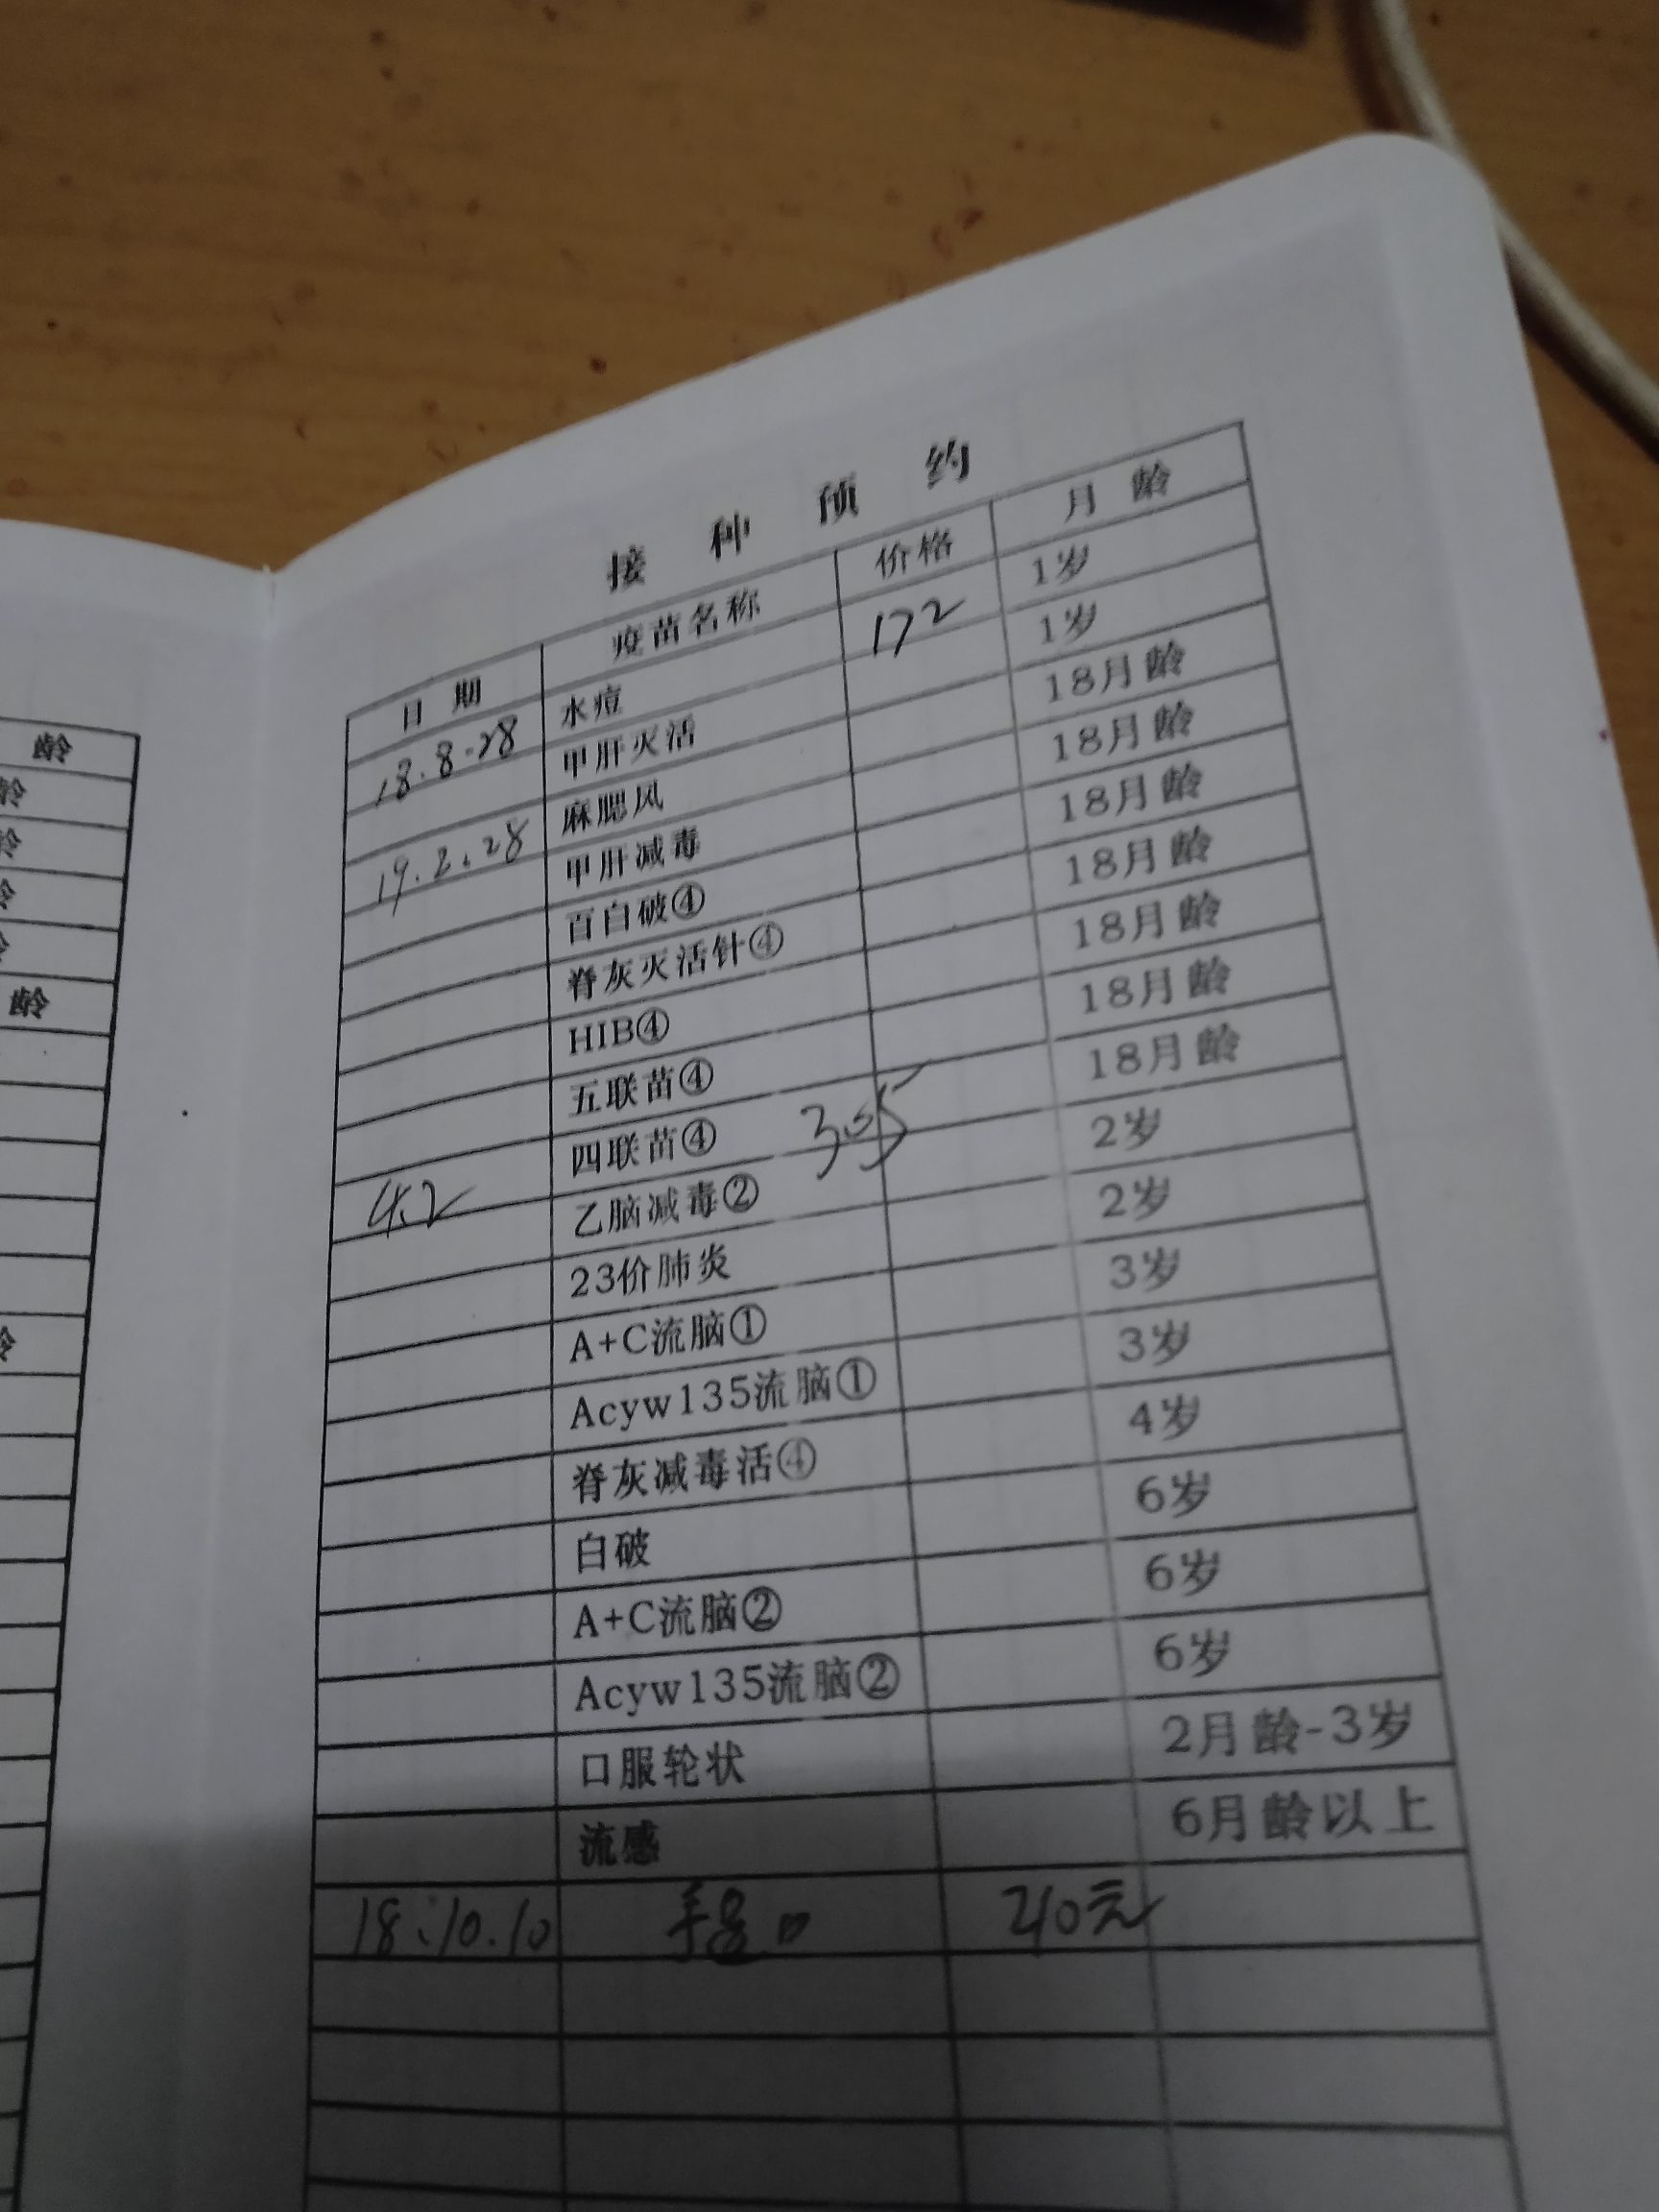 接种预约
日期 疫苗名称 价格 月龄
18.8.28 水痘 172 1岁
甲肝灭活 1岁
19.2.28 麻腮风 18月龄
甲肝减毒 18月龄
百白破④ 18月龄
脊灰灭活针④ 18月龄
HIB④ 18月龄
五联苗④ 18月龄
四联苗④ 305 18月龄
4.2 乙脑减毒② 2岁
23价肺炎 2岁
A+C流脑① 3岁
Acyw135流脑① 3岁
脊灰减毒活④ 4岁
白破 6岁
A+C流脑② 6岁
Acyw135流脑② 6岁
口服轮状 2月龄-3岁
流感 6月龄以上
18.10.10 手足口 210元
龄
龄